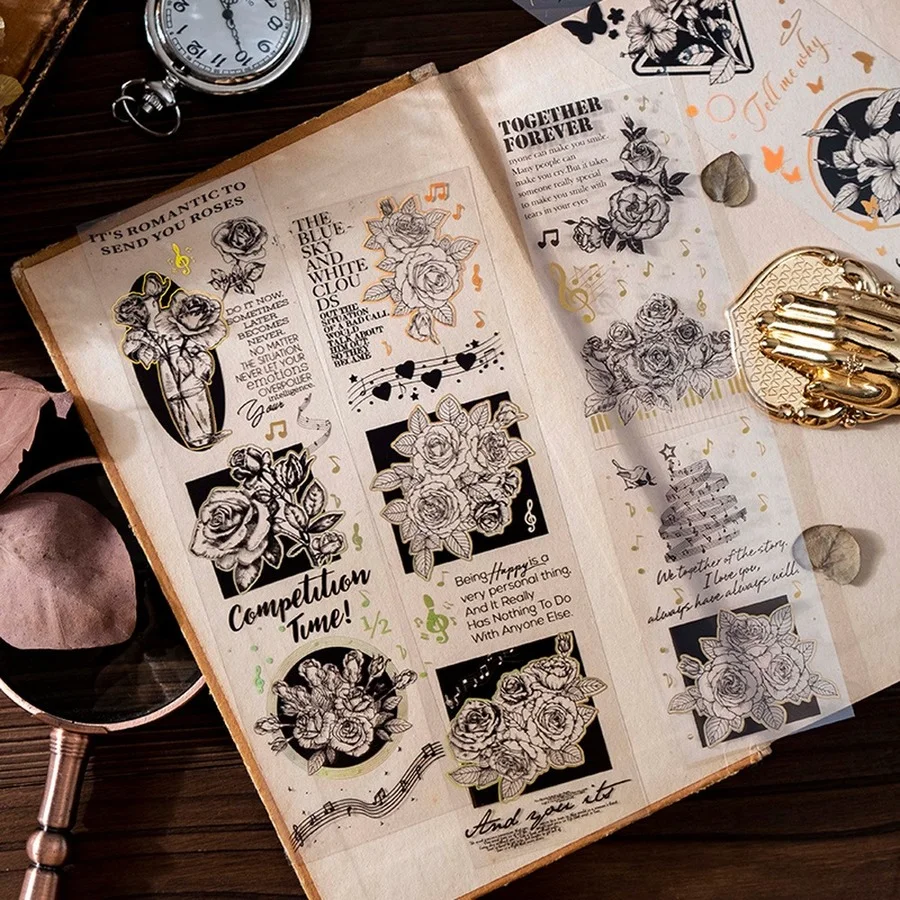 IT'S ROMANTIC TO
SEND YOU ROSES
DO IT NOW,
SOMETIMES
LATER
BECOMES
NEVER.
NO MATTER
THE SITUATION,
NEVER LET YOUR
emotions
OVERPOWER
intelligence.
Your
Competition
Time!
1/2
THE
BLUE-
SKY
AND
WHITE
CLOU
DS
OUT THE
SITUATION
OF A RADICALL
WOULD
TALK ABOUT
Being Happy is a
very personal thing,
And It Really
Has Nothing To Do
With Anyone Else.
And you its
TOGETHER
FOREVER
nyone can make you smile.
Many people can
make you cry.But it takes
someone really special
to make you smile with
tears in your eyes
We together of the story.
I love you,
always have always will.
Tell me why